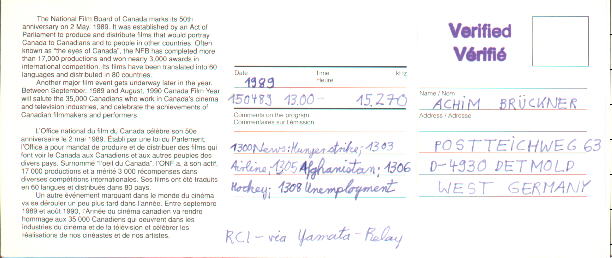 The National Film Board of Canada marks its 50th
anniversary on 2 May, 1989. It was established by an Act of
Parliament to produce and distribute films that would portray
Canada to Canadians and to people in other countries. Often
known as "the eyes of Canada", the NFB has completed more
than 17,000 productions and won nearly 3,000 awards in
international competition. Its films have been translated into 60
languages and distributed in 80 countries.
Another major film event gets underway later in the year.
Between September, 1989 and August, 1990 Canada Film Year
will salute the 35,000 Canadians who work in Canada's cinema and
television industries, and celebrate the achievements of
Canadian filmmakers and performers.
L'Office national du film du Canada célèbre son 50e
anniversaire le 2 mai 1989. Établi par une loi du Parlement,
l'Office a pour mandat de produire et de distribuer des films qui
font voir le Canada aux Canadiens et aux autres peuples des
divers pays. Surnommé "l'oeil du Canada", l'ONF a, à son actif,
17 000 productions et a mérité 3 000 récompenses dans
diverses compétitions internationales. Ses films ont été traduits
en 60 langues et distribués dans 80 pays.
Un autre événement marquant dans le monde du cinéma
va se dérouler un peu plus tard dans l'année. Entre septembre
1989 et août 1990, l'Année du cinéma canadien va rendre
hommage aux 35 000 Canadiens qui oeuvrent dans les
industries du cinéma et de la télévision et célébrer les
réalisations de nos cinéastes et de nos artistes.
Date Time Heure kHz
1989
150489 13.00- 15.270
Comments on the program
Commentaires sur l'émission
1300 News: Hungerstrike; 1303
Airline; 1305 Afghanistan; 1306
Hockey; 1308 Unemployment
RCI - via Yamata - Relay
Verified
Vérifié
Name / Nom
ACHIM BRÜCKNER
Address / Adresse
POSTTEICHWEG 63
D-4930 DETMOLD
WEST GERMANY